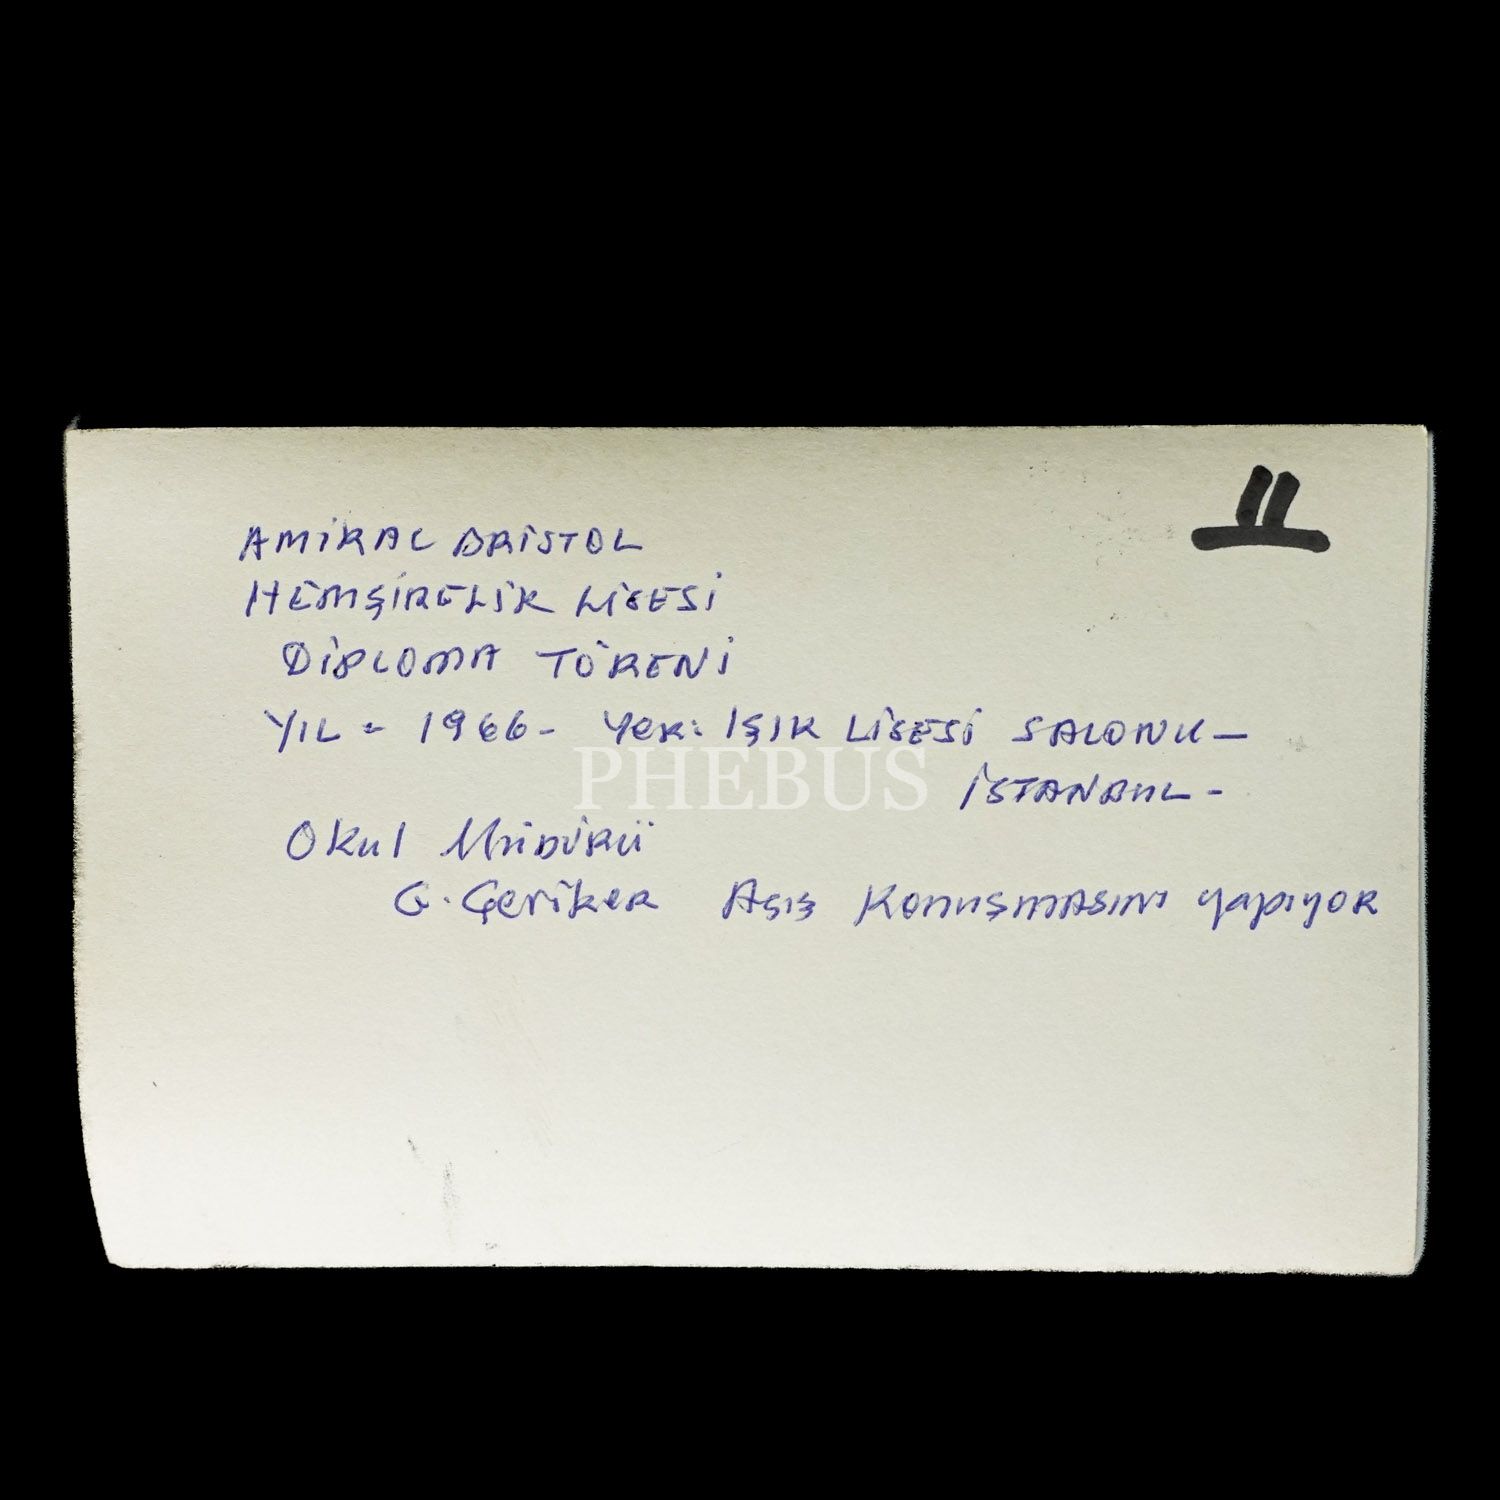 11
AMİRAL BRİSTOL
HEMŞİRELİK LİSESİ
DİPLOMA TÖRENİ
YIL = 1966 - Yer: IŞIK LİSESİ SALONU -
PHEBUS
İSTANBUL -
Okul Müdürü
G. Çeriker Açış Konuşmasını yapıyor